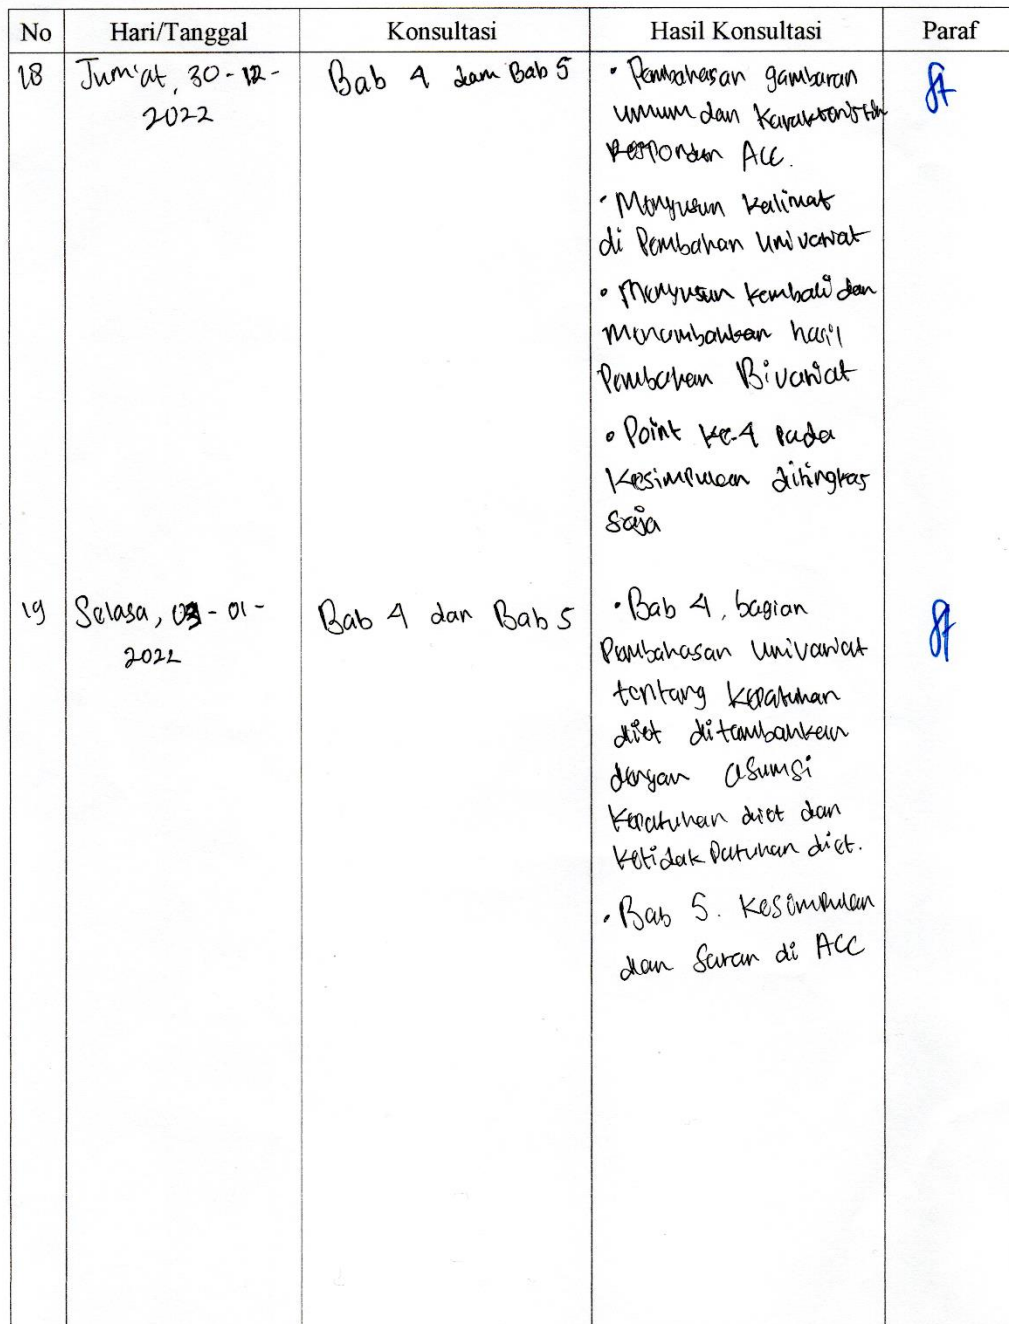 No Hari/Tanggal Konsultasi Hasil Konsultasi Paraf
18 Jum'at, 30-12-
2022
Bab 4 dan Bab 5
• Pembahasan gambaran
umum dan Karakteristik
Responden ACC.
• Menyusun kalimat
di Pembahan Univariat
• Menyusun kembali dan
Menambahkan hasil
Pembahan Bivariat
• Point ke-4 pada
Kesimpulan diringkas
saja
19 Selasa, 03-01-
2022
Bab 4 dan Bab 5
• Bab 4, bagian
Pembahasan Univariat
tentang kepatuhan
diet ditambahkan
dengan asumsi
Kepatuhan diet dan
ketidak Patuhan diet.
• Bab 5. Kesimpulan
dan Saran di ACC